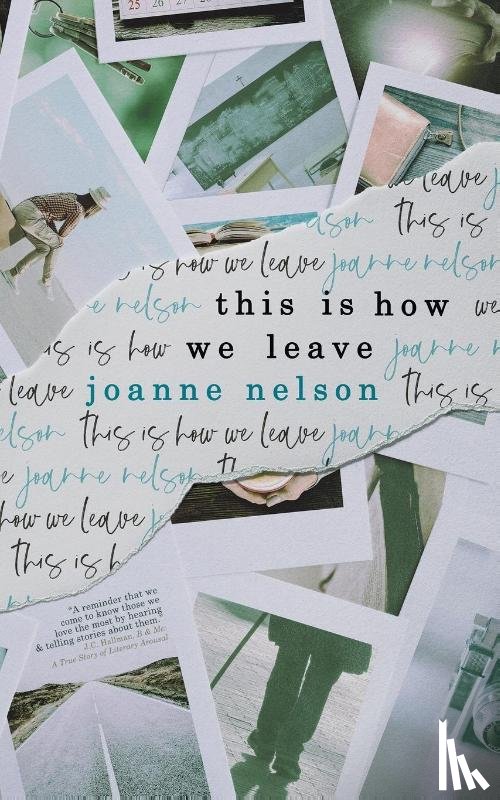 25 26 27
leave j
elson this is
is how we leave joanne nelson
e nelson this is how we
is is how we leave joanne n
leave joanne nelson this is
elson this is how we leave joann
e joanne nelson th
how we leave j
this is h
"A reminder that we
come to know those we
love the most by hearing
& telling stories about them."
J.C. Hallman, B & Me:
A True Story of Literary Arousal